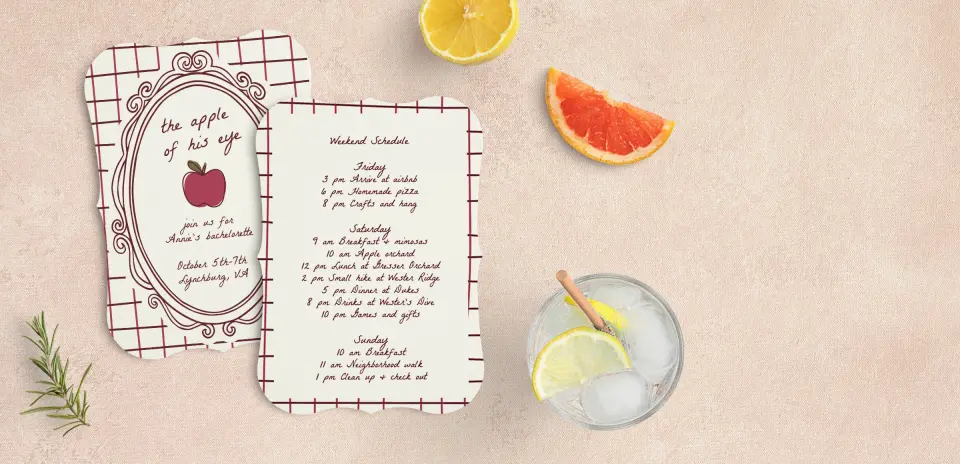 the apple
of his eye
join us for
Annie's bachelorette
October 5th-7th
Lynchburg, VA
Weekend Schedule
Friday
3 pm Arrive at airbnb
6 pm Homemade pizza
8 pm Crafts and hang
Saturday
9 am Breakfast + mimosas
10 am Apple orchard
12 pm Lunch at Gresser Orchard
2 pm Small hike at Wester Ridge
5 pm Dinner at Dukes
8 pm Drinks at Wester's Dive
10 pm Games and gifts
Sunday
10 am Breakfast
11 am Neighborhood walk
1 pm Clean up + check out